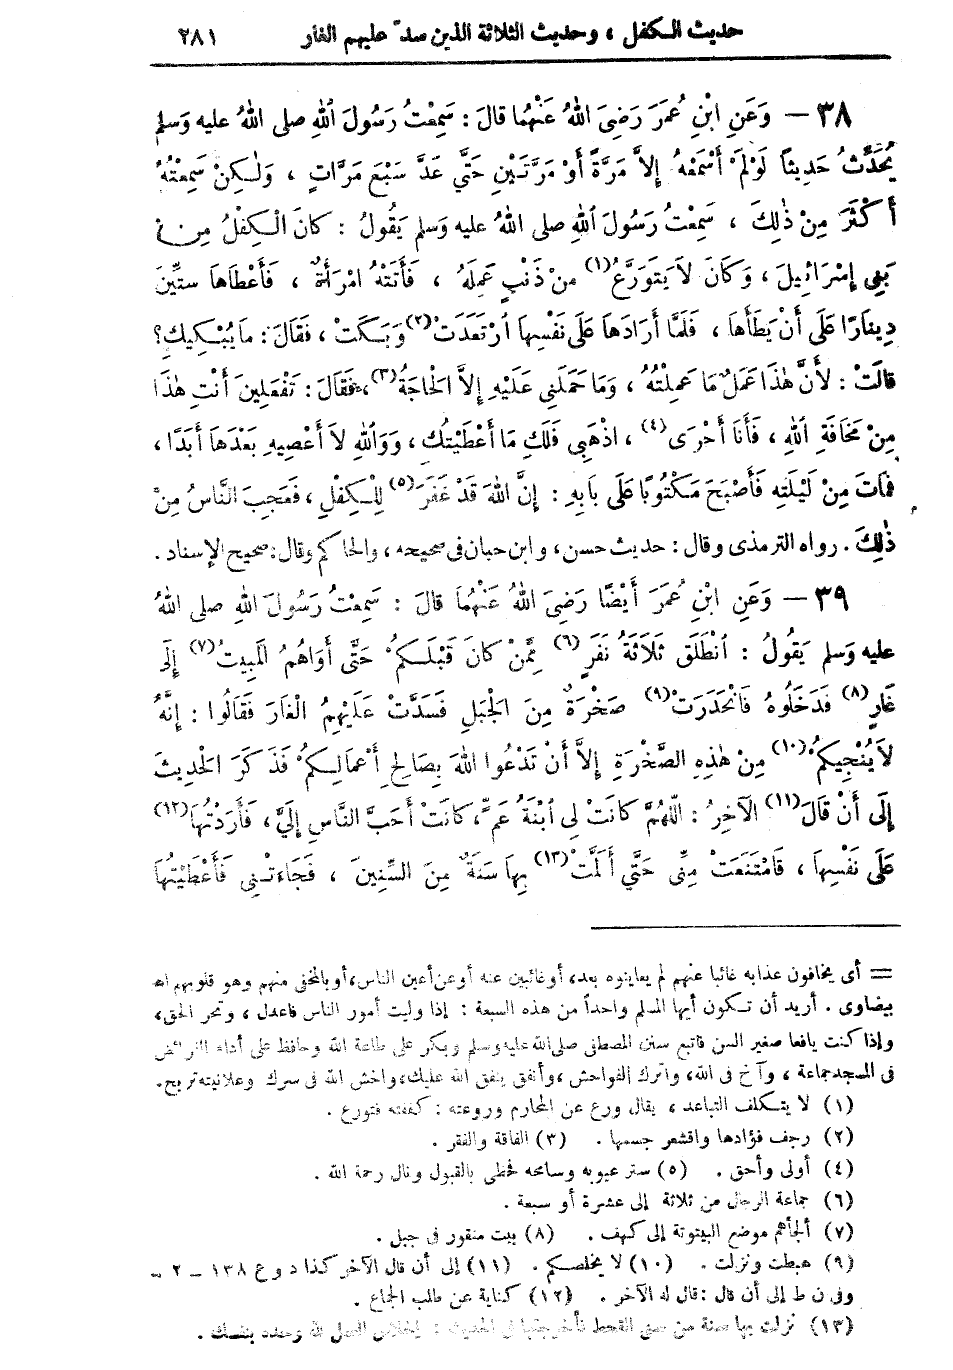 حديث الكفل ، وحديث الثلاثة الذين صدّ عليهم الغار ٢٨١
٣٨ — وَعَنِ ابْنِ عُمَرَ رَضِىَ اللهُ عَنْهُمَا قالَ : سَمِعْتُ رَسُولَ اللهِ صلى اللهُ عليه وَسلم
يُحَدِّثُ حَدِيثًا لَوْ لَمْ أَسْمَعْهُ إِلاَّ مَرَّةً أَوْ مَرَّتَيْنِ حَتَّى عَدَّ سَبْعَ مَرَّاتٍ ، وَلٰكِنْ سَمِعْتُهُ
أَكْثَرَ مِنْ ذٰلِكَ ، سَمِعْتُ رَسُولَ اللهِ صلى اللهُ عليه وَسلم يَقُولُ : كانَ الْكِفْلُ مِنْ
بَنِى إِسْرَائِيلَ ، وَكَانَ لاَ يَتَوَرَّعُ(١) مِنْ ذَنْبٍ عَمِلَهُ ، فَأَتَتْهُ امْرَأَةٌ ، فَأَعْطَاهَا ستِّينَ
دِينَارًا عَلَى أَنْ يَطَأَهَا ، فَلَمَّا أَرَادَهَا عَلَى نَفْسِهَا ارْتَعَدَتْ(٢) وَبَكَتْ ، فَقَالَ : مَا يُبْكِيكِ؟
قالَتْ : لأَنَّ هٰذَا عَمَلٌ مَا عَمِلْتُهُ ، وَمَا حَمَلَنِى عَلَيْهِ إِلاَّ الْحَاجَةُ(٣) ، فَقَالَ : تَفْعَلِينَ أَنْتِ هٰذَا
مِنْ مَخَافَةِ اللهِ ، فَأَنَا أَحْرَى(٤) ، اذْهَبِى فَلَكِ مَا أَعْطَيْتُكِ ، وَوَاللهِ لاَ أَعْصِيهِ بَعْدَهَا أَبَدًا ،
فَمَاتَ مِنْ لَيْلَتِهِ فَأَصْبَحَ مَكْتُوبًا عَلَى بَابِهِ : إِنَّ اللهَ قَدْ غَفَرَ(٥) لِلْكِفْلِ ، فَعَجِبَ النَّاسُ مِنْ
ذٰلِكَ . رواه الترمذى وقال : حديث حسن ، وابن حبان فى صحيحه ، والحاكم وقال : صحيح الإسناد .
٣٩ — وَعَنِ ابْنِ عُمَرَ أَيْضًا رَضِىَ اللهُ عَنْهُمَا قالَ : سَمِعْتُ رَسُولَ اللهِ صلى اللهُ
عليه وَسلم يَقُولُ : انْطَلَقَ ثَلاَثَةُ نَفَرٍ(٦) مِمَّنْ كانَ قَبْلَكُمْ حَتَّى أَوَاهُمُ الْمَبِيتُ(٧) إِلَى
غَارٍ(٨) فَدَخَلُوهُ فَانْحَدَرَتْ(٩) صَخْرَةٌ مِنَ الْجَبَلِ فَسَدَّتْ عَلَيْهِمُ الْغَارَ فَقَالُوا : إِنَّهُ
لاَ يُنْجِيكُمْ(١٠) مِنْ هٰذِهِ الصَّخْرَةِ إِلاَّ أَنْ تَدْعُوا اللهَ بِصَالِحِ أَعْمَالِكُمْ فَذَكَرَ الْحَدِيثَ
إِلَى أَنْ قَالَ(١١) الآخِرُ : اللّٰهُمَّ كَانَتْ لِى ابْنَةُ عَمٍّ ، كَانَتْ أَحَبَّ النَّاسِ إِلَيَّ ، فَأَرَدْتُهَا(١٢)
عَلَى نَفْسِهَا ، فَامْتَنَعَتْ مِنِّى حَتَّى أَلَمَّتْ(١٣) بِهَا سَنَةٌ مِنَ السِّنِينَ ، فَجَاءَتْنِى فَأَعْطَيْتُهَا
= أى يخافون عذابه غائبا عنهم لم يعاينوه بعد، أو غائبين عنه أو عن أعين الناس، أو بالمخفى منهم وهو قلوبهم اهـ
بيضاوى . أريد أن تكون أيها المسلم واحداً من هذه السبعة : إذا وليت أمور الناس فاعدل ، وتحر الحق ،
وإذا كنت يافعا صغير السن فاتبع سنن المصطفى صلى الله عليه وسلم وبكر على طاعة الله وحافظ على أداء الفرائض
فى المسجد جماعة ، وآخ فى الله، واترك الفواحش ، وأنفق ينفق الله عليك، واخش الله فى سرك وعلانيته تربح.
(١) لا يتكلف التباعد ، يقال ورع عن المحارم وروعته : كففته فتورع .
(٢) رجف فؤادها واقشعر جسمها . (٣) الفاقة والفقر .
(٤) أولى وأحق . (٥) ستر عيوبه وسامحه فحظى بالقبول ونال رحمة الله .
(٦) جماعة الرجال من ثلاثة إلى عشرة أو سبعة .
(٧) ألجأهم موضع البيتوتة إلى كهف . (٨) بيت منقور فى جبل .
(٩) هبطت ونزلت . (١٠) لا يخلصكم . (١١) إلى أن قال الآخر كذا د و ع ١٣٨ – ٢ –
وفى ن ط إلى أن قال : قال له الآخر . (١٢) كناية عن طلب الجماع .
(١٣) نزلت بها سنة من سنى القحط فأحوجتها فى الحديث : إخلاص العمل لله وحده بنفسك .